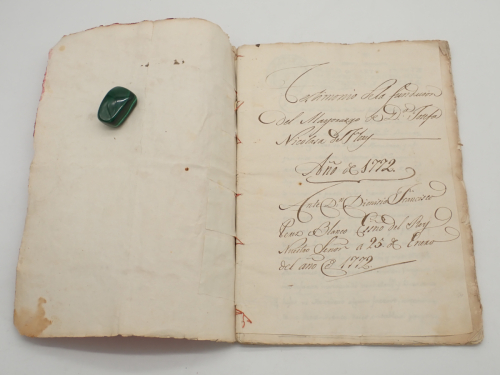 Testimonio de la fundacion
del Mayorazgo de D.ª Josefa
Nicolasa del
Año de 1772.
Ante D.n Dionisio Francisco
Blanco Essno del Rey
Nuestro Señor a 25 de Enero
del año de 1772